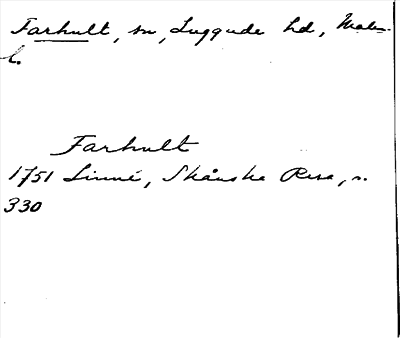 Farhult, sn, Luggude hd, Malm.
l.
Farhult
1751 Linné, Skånska Resa, s.
330